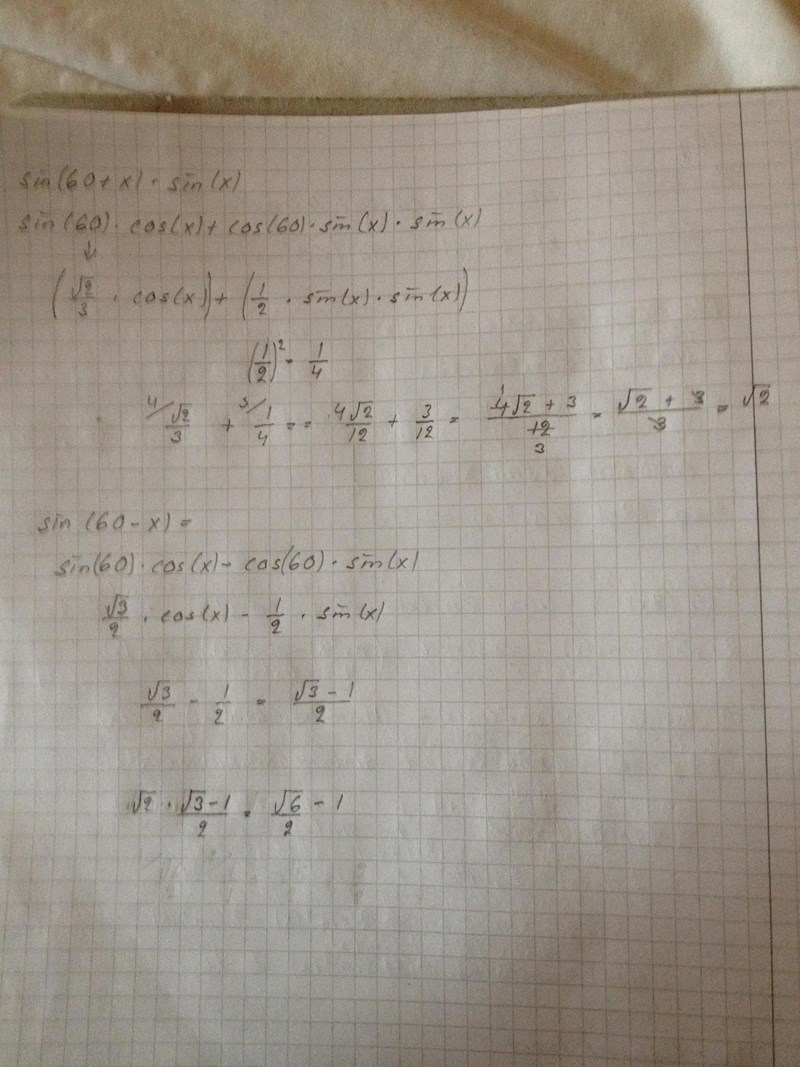 sin(60+x) · sin(x)
sin(60) · cos(x) + cos(60) · sin(x) · sin(x)
↓
(√2/3 · cos(x)) + (1/2 · sin(x) · sin(x))
(1/2)² = 1/4
4/ √2/3 + 3/ 1/4 = = 4√2/12 + 3/12 = 1 4√2 + 3 / 12 3 = √2 + 3 / 3 = √2
sin(60-x) =
sin(60) · cos(x) - cos(60) · sin(x)
√3/2 · cos(x) - 1/2 · sin(x)
√3/2 - 1/2 = √3 - 1 / 2
√2 · √3-1 / 2 = √6/2 - 1